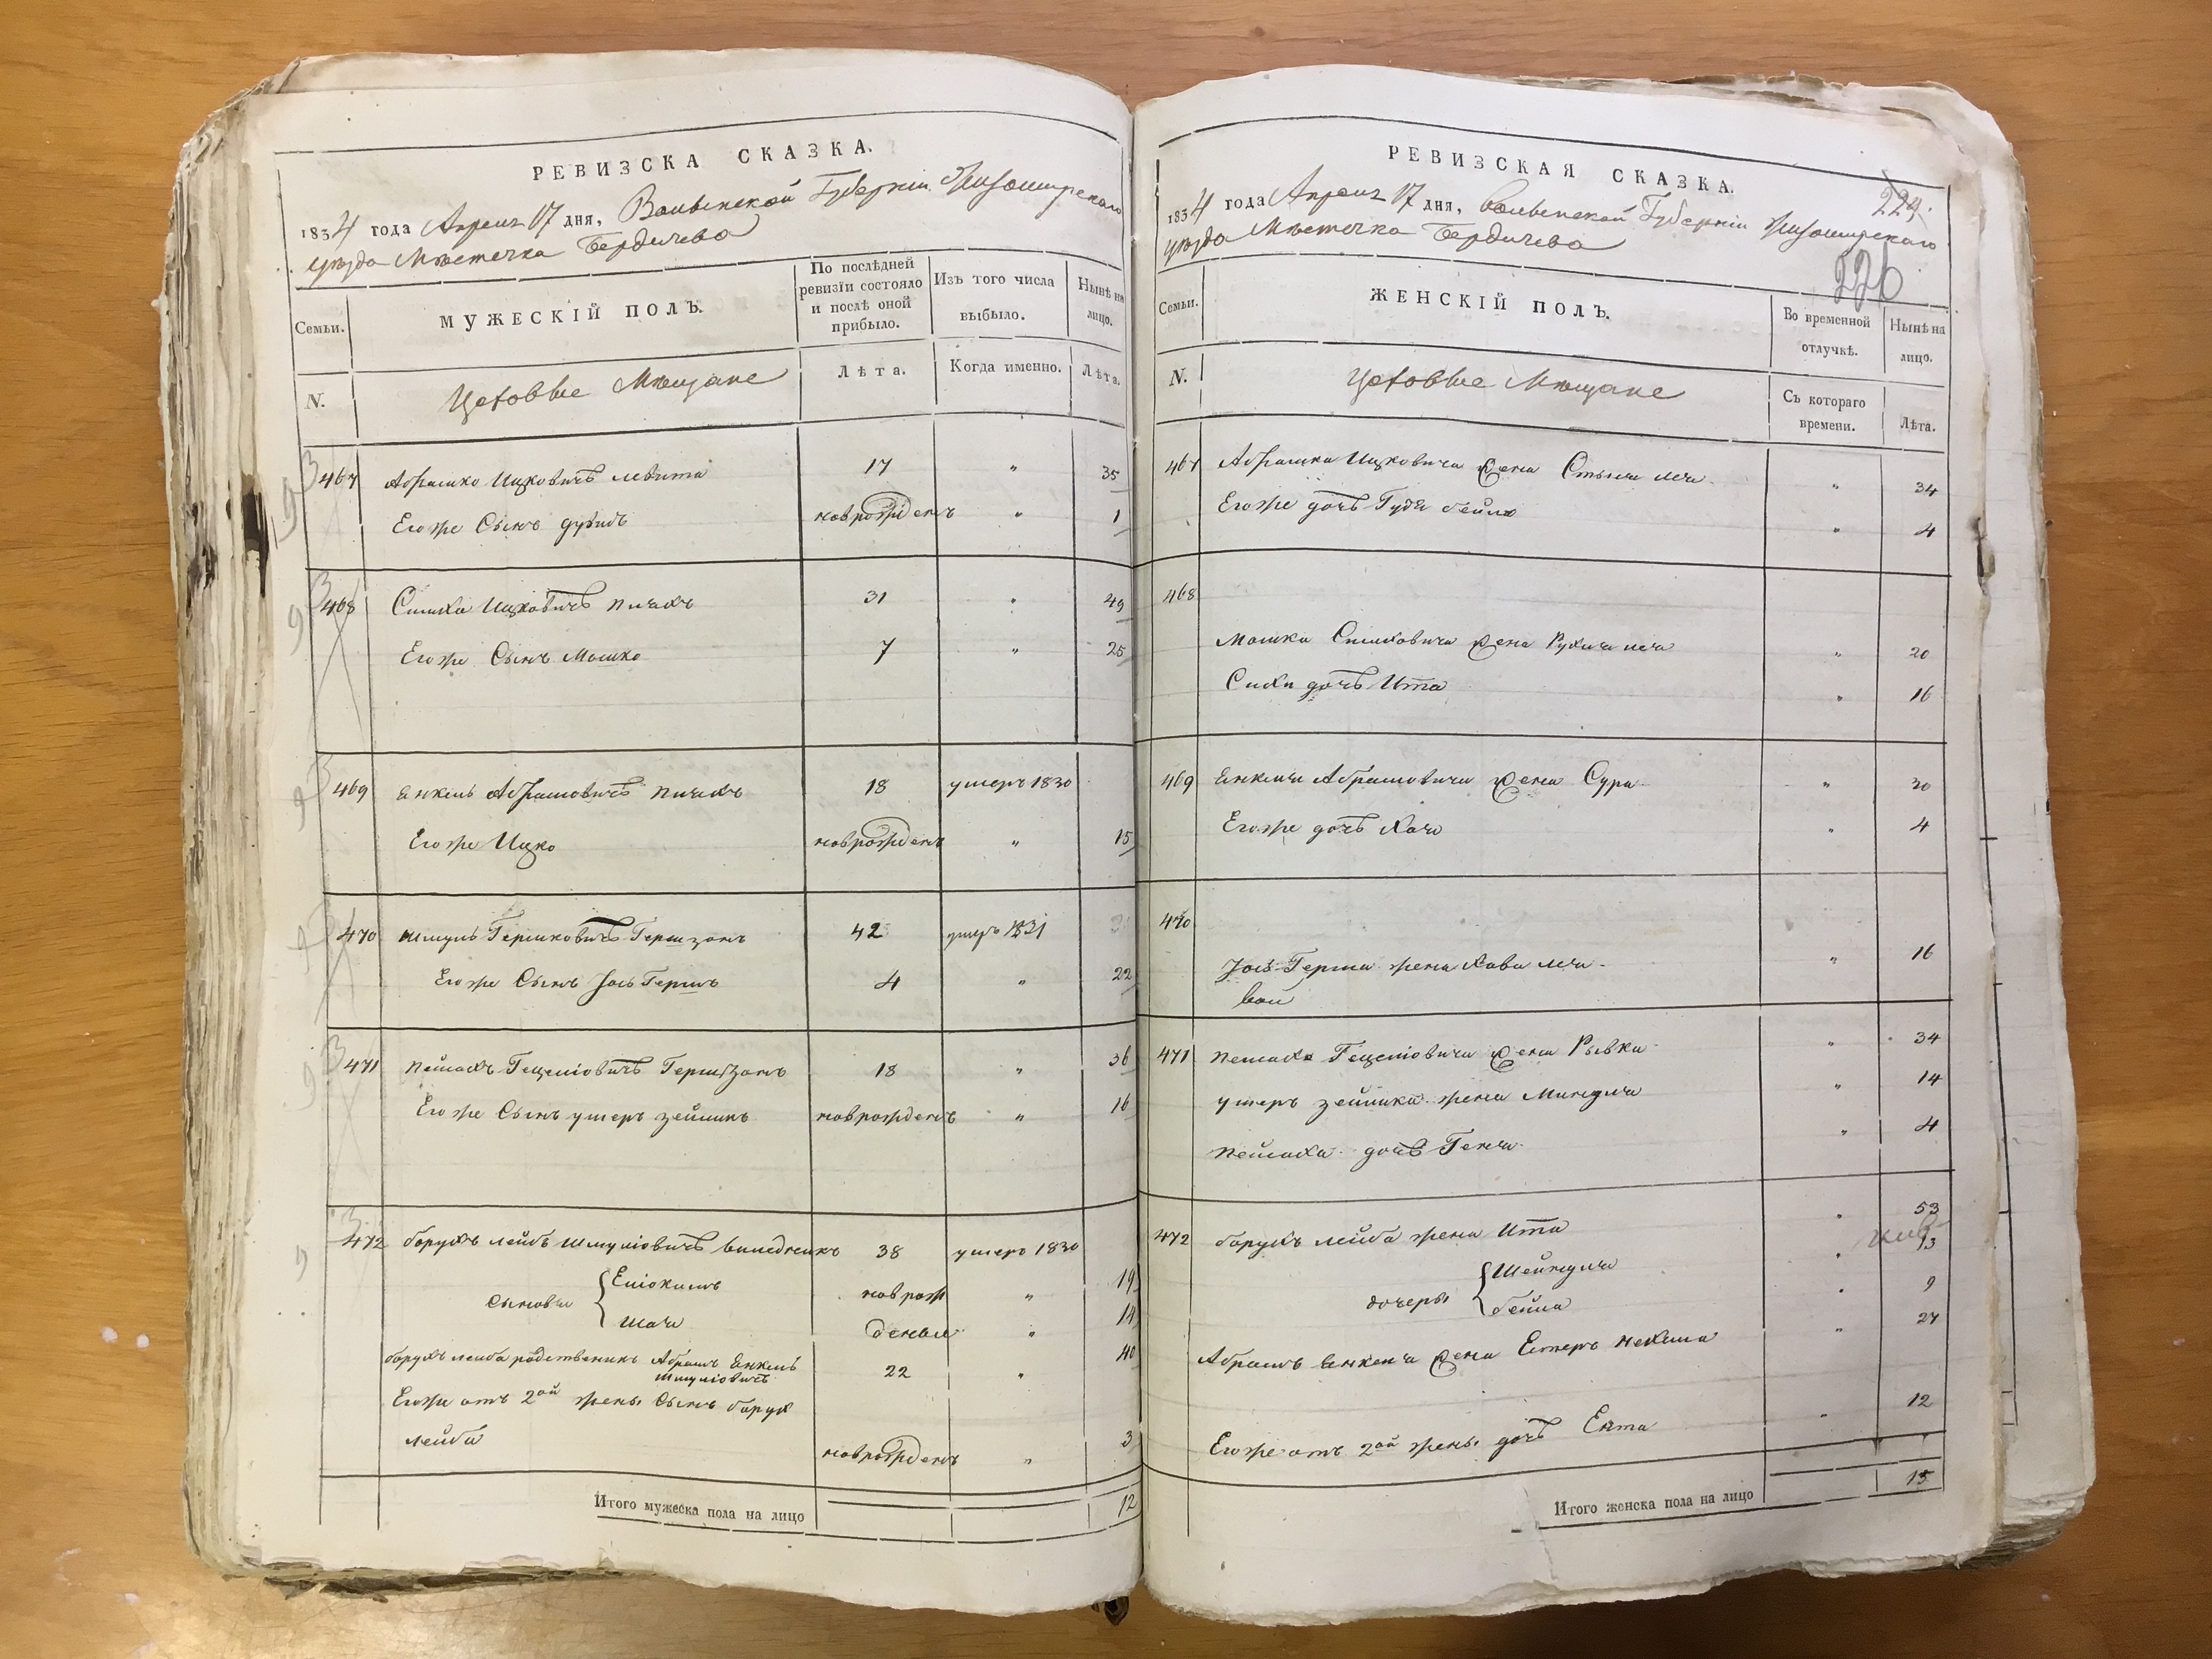 РЕВИЗСКА СКАЗКА.
1834 года Апреля 17 дня, Волынской Губерніи Житомирскаго
уѣзда Мѣстечка Бердичева
Семьи.
МУЖЕСКІЙ ПОЛЪ.
По послѣдней ревизіи состояло и послѣ оной прибыло.
Изъ того числа выбыло.
Нынѣ на лицо.
N.
Цеховые Мещане
Лѣта.
Когда именно.
Лѣта.
467 Абрамко Ицковичъ Левита 17 " 35
Егоже Сынъ Дувидъ новрожденъ " 1
468 Симха Ицковичъ Пичакъ 31 " 49
Егоже Сынъ Мошко 7 " 25
469 Енкель Абрамовичъ Пичакъ 18 умеръ 1830
Егоже Ицко новрожденъ " 15
470 Шмуль Гершковичъ Гершзонъ 42 умеръ 1831
Егоже Сынъ Іось Гершъ 4 " 22
471 Пейсахъ Гецеліовичъ Гершзонъ 18 " 36
Егоже Сынъ Умеръ Зейликъ новрожденъ " 16
472 Борухъ Лейбъ Шмуліовичъ 38 умеръ 1830
Сыновья Еліокимъноврож " 19
Шая дены " 14
Борухъ Лейба родственикъ Абрамъ Енкель 22 " 40
Шмуліовичъ
Егоже отъ 2ой жены Сынъ Борух
Лейба новрожденъ " 3
Итого мужеска пола на лицо 12
РЕВИЗСКАЯ СКАЗКА.
224
1834 года Апреля 17 дня, Волынской Губерніи Житомирскаго
уѣзда Мѣстечка Бердичева
226
Семьи.
ЖЕНСКІЙ ПОЛЪ.
Во временной отлучкѣ.
Нынѣ на лицо.
N.
Цеховые Мещане
Съ котораго времени.
Лѣта.
467 Абрамка Ицковича Жена " 34
Егоже дочь Гудя Бейла " 4
468
Мошка Симховича Жена " 20
Симхи дочь Ита " 16
469 Енкеля Абрамовича Жена Сура " 30
Егоже дочь Хая " 4
470
Іось Герша жена Хава Леа " 16
471 Пейсаха Гецеліовича Жена Рывка " 34
Умеръ Зейлика жена Миндля " 14
Пейсаха дочь Геня " 4
472 Борухъ Лейба жена Ита " 53
дочеры Шейндля " 13
Бейла " 9
Абрамъ Енкеля Жена Естеръ Нехама " 27
Егоже отъ 2ой жены дочь Ента " 12
Итого женска пола на лицо 15